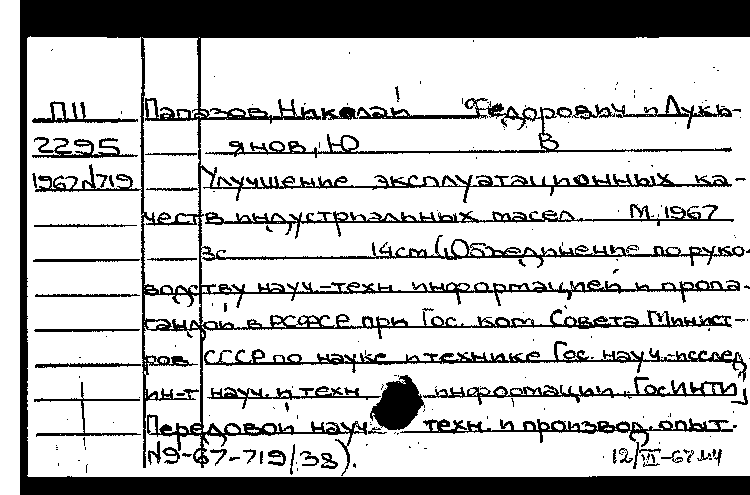 П11 Папазов, Николай Федорович и Лукь-
2295 янов, Ю В
1967 N719 Улучшение эксплуатационных ка-
честв индустриальных масел. М, 1967
3с 14см (Объединение по руко-
водству науч.-техн. информацией и пропа-
гандой в РСФСР при Гос. ком. Совета Минист-
ров СССР по науке и технике Гос. науч.-исслед
ин-т науч. и техн информации „ГосИНТИ"
Передовой науч. техн. и производ. опыт.
N9-67-719/38).
12/VI-67